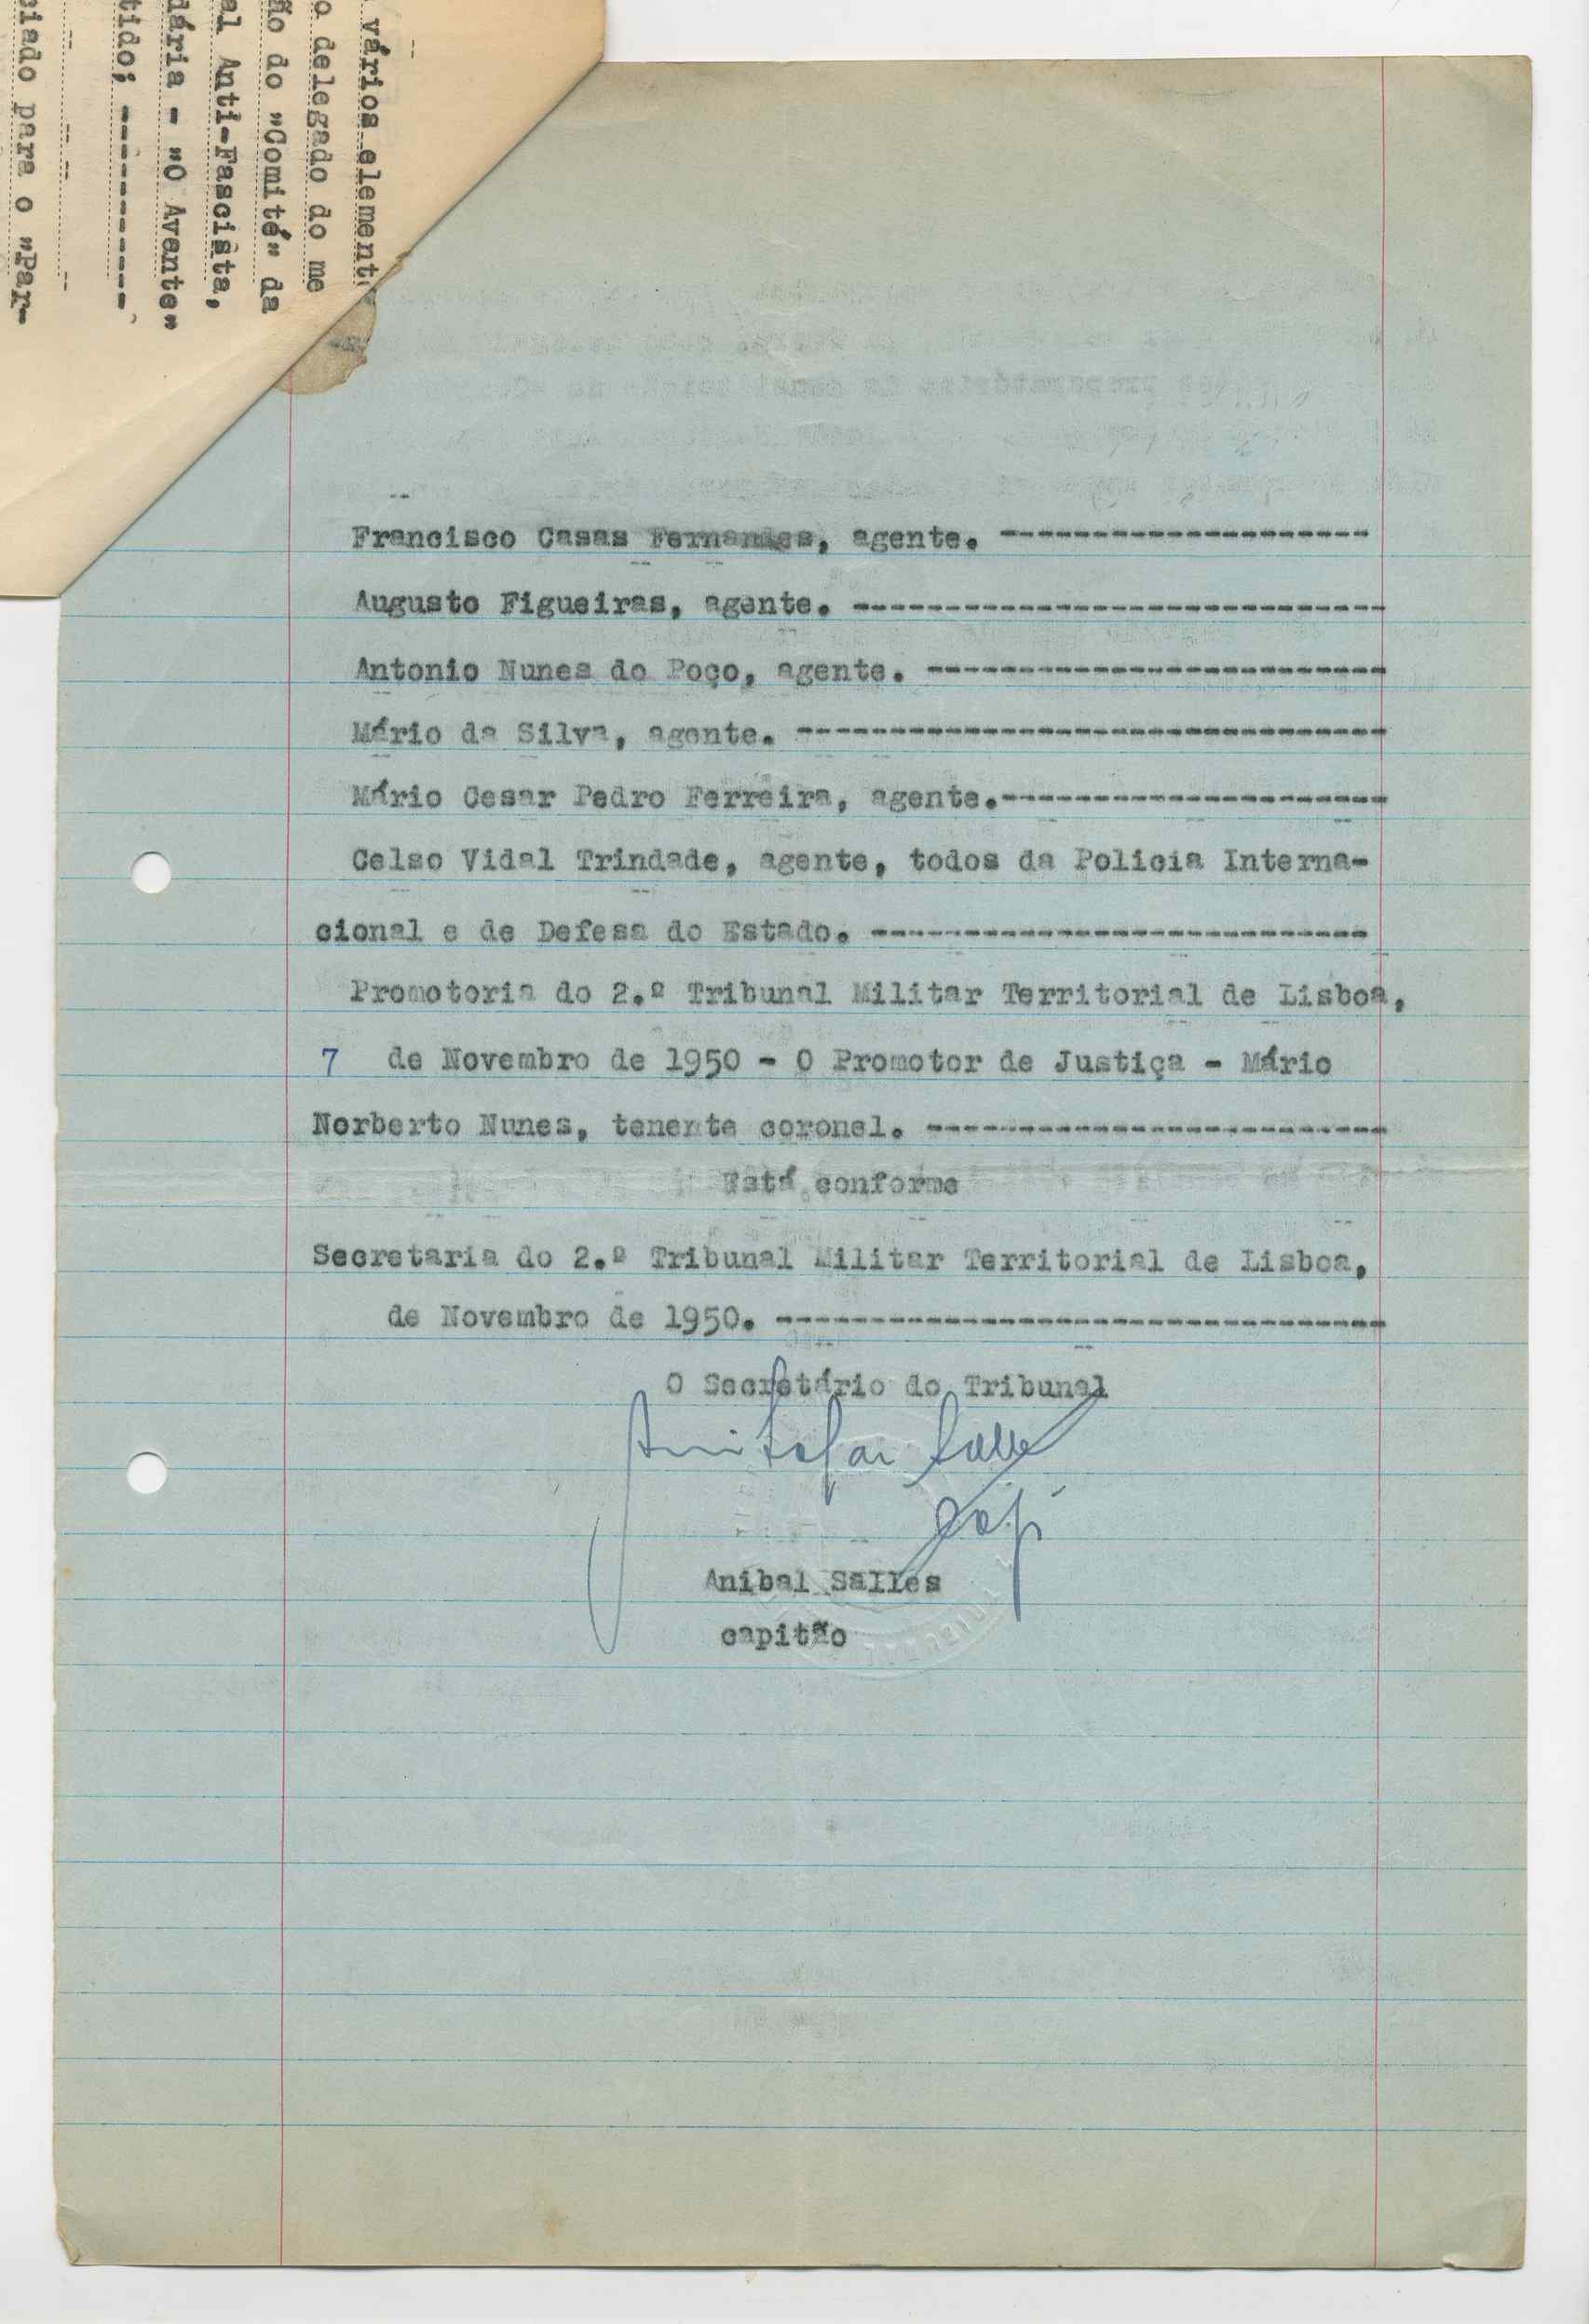 vários element
o delegado do me
ão do "Comité" da
al Anti-Fascista,
dária - "O Avante"
tido; ----------
ciado para o "Par-
Francisco Casas Fernandes, agente. --------------------
Augusto Figueiras, agente. -----------------------------
Antonio Nunes do Poço, agente. -------------------------
Mário da Silva, agente. --------------------------------
Mário Cesar Pedro Ferreira, agente.---------------------
Celso Vidal Trindade, agente, todos da Policia Interna-
cional e de Defesa do Estado. ---------------------------
Promotoria do 2.º Tribunal Militar Territorial de Lisboa,
7 de Novembro de 1950 - O Promotor de Justiça - Mário
Norberto Nunes, tenente coronel. -------------------------
Está conforme
Secretaria do 2.º Tribunal Militar Territorial de Lisboa,
de Novembro de 1950. ---------------------------------
O Secretário do Tribunal
Anibal Salles
capitão